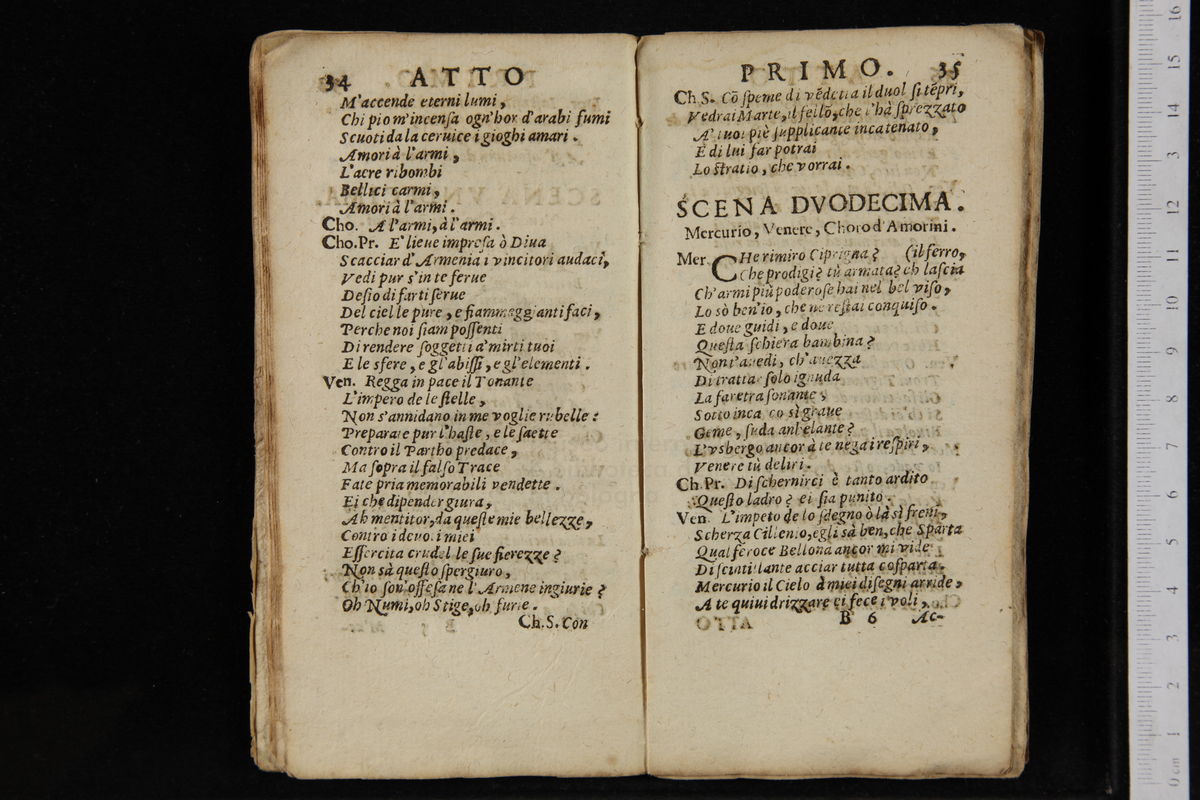 34 ATTO
M'accende eterni lumi,
Chi pio m'incensa ogn'hor d'arabi fumi
Scuoti da la ceruice i gioghi amari.
Amori à l'armi,
L'aere ribombi
Bellici carmi,
Amori à l'armi.
Cho. A l'armi, à l'armi.
Cho.Pr. E' lieue impresa ò Diua
Scacciar d'Armenia i vincitori audaci,
Vedi pur s'in te ferue
Desio di farti serue
Del ciel le pure, e fiammeggianti faci,
Perche noi siam possenti
Di rendere soggetti a' mirti tuoi
E le sfere, e gl'abissi, e gl'elementi.
Ven. Regga in pace il Tonante
L'impero de le stelle,
Non s'annidano in me voglie rubelle:
Preparate pur l'haste, e le saette
Contro il Partho predace,
Ma sopra il falso Trace
Fate pria memorabili vendette.
Ei che dipender giura,
Ah mentitor, da queste mie bellezze,
Contro i deuoti miei
Essercita crudel le sue fierezze?
Non sà questo spergiuro,
Ch'io son offesa ne l'Armene ingiurie?
Oh Numi, oh Stige, oh furie.
Ch.S. Con
PRIMO. 35
Ch S. Cõ speme di vẽdetta il duol si tẽpri,
Vedrai Marte, il fellõ, che t'hà sprezzato
A' tuoi piè supplicante incatenato,
E di lui far potrai
Lo stratio, che vorrai.
SCENA DVODECIMA.
Mercurio, Venere, Choro d'Amorini.
Mer. CHe rimiro Ciprigna? (il ferro,
Che prodigi? tù armata? eh lascia
Ch'armi più poderose hai nel bel viso,
Lo sò ben'io, che ne restai conquiso.
E doue guidi, e doue
Questa schiera bambina?
Non t'auedi, ch'auezza
Di trattar solo ignuda
La faretra sonante,
Sotto incarco sì graue
Geme, suda anhelante?
L'vsbergo ancor à te nega i respiri,
Venere tù deliri.
Ch.Pr. Di schernirci è tanto ardito
Questo ladro? ei sia punito.
Ven. L'impeto de lo sdegno ò là si freni,
Scherza Cillenio, egli sà ben, che Sparta
Qual feroce Bellona ancor mi vide
Di scintillante acciar tutta cosparta.
Mercurio il Cielo à miei disegni arride,
A te quiui drizzare ei fece i voli,
B 6 Ac-